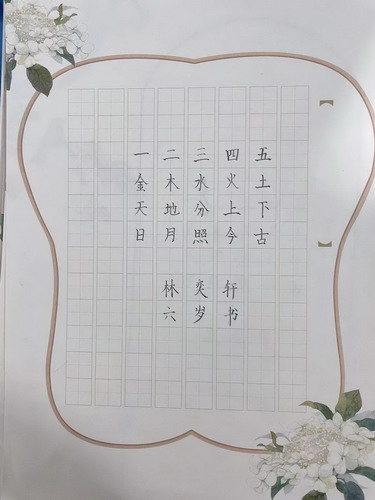 一二三四五
金木水火土
天地分上下
日月照今古
林奕轩
六岁书